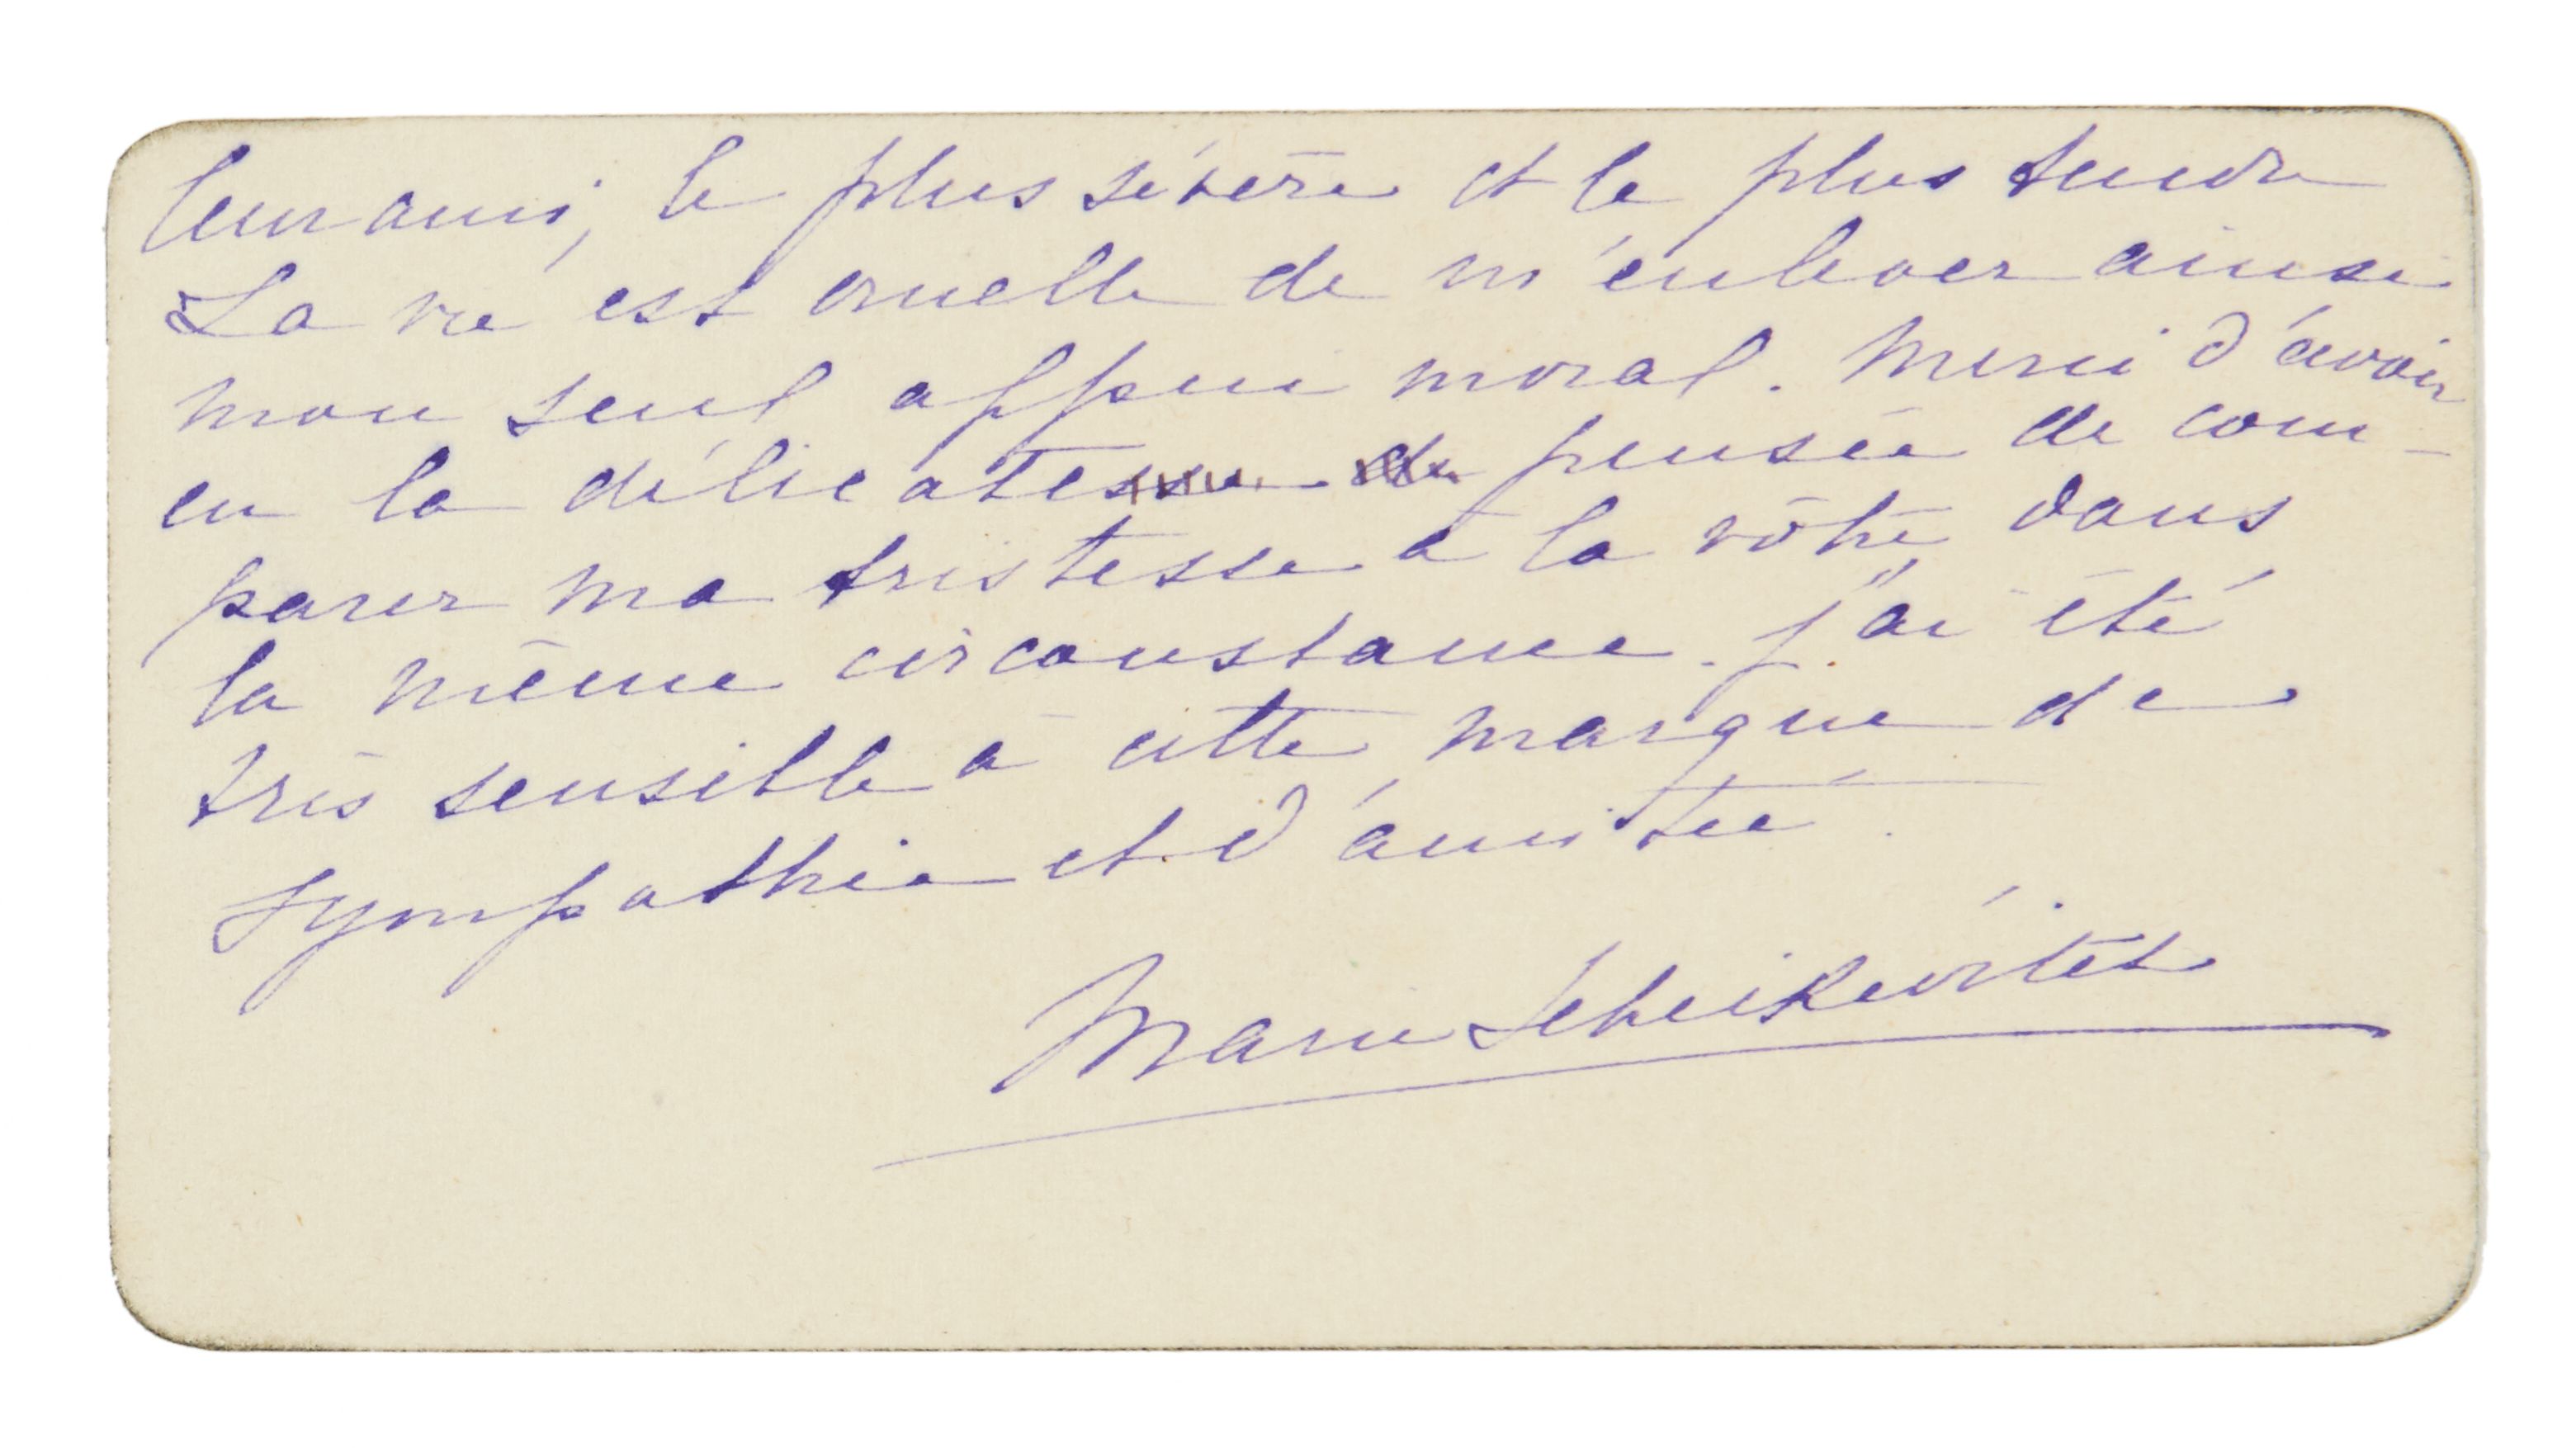 leur ami, le plus sévère et le plus tendre
La vie est cruelle de m'enlever ainsi
mon seul appui moral. Merci d'avoir
eu la délicate pensée de com-
parer ma tristesse à la vôtre dans
la même circonstance. J'ai été
très sensible à cette marque de
sympathie et d'amitié.
Marie Scheikévitch